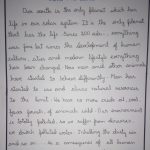 Our earth is the only planet which has
life in our solar system. It is the only planet
that has the life since 200 . everything
was fine but since the development of human
culture, cities and modern lifestyle everything
has been changed. Now men and other animals
have started to behave differently. Man has
started to use and abuse natural resources
to the limit. We now no more exist of and
lives of animals and. Our environment
is totally polluted so we suffer from diseases
or drink polluted water. Inhaling the dusty air
and so on. As a consequence of all human